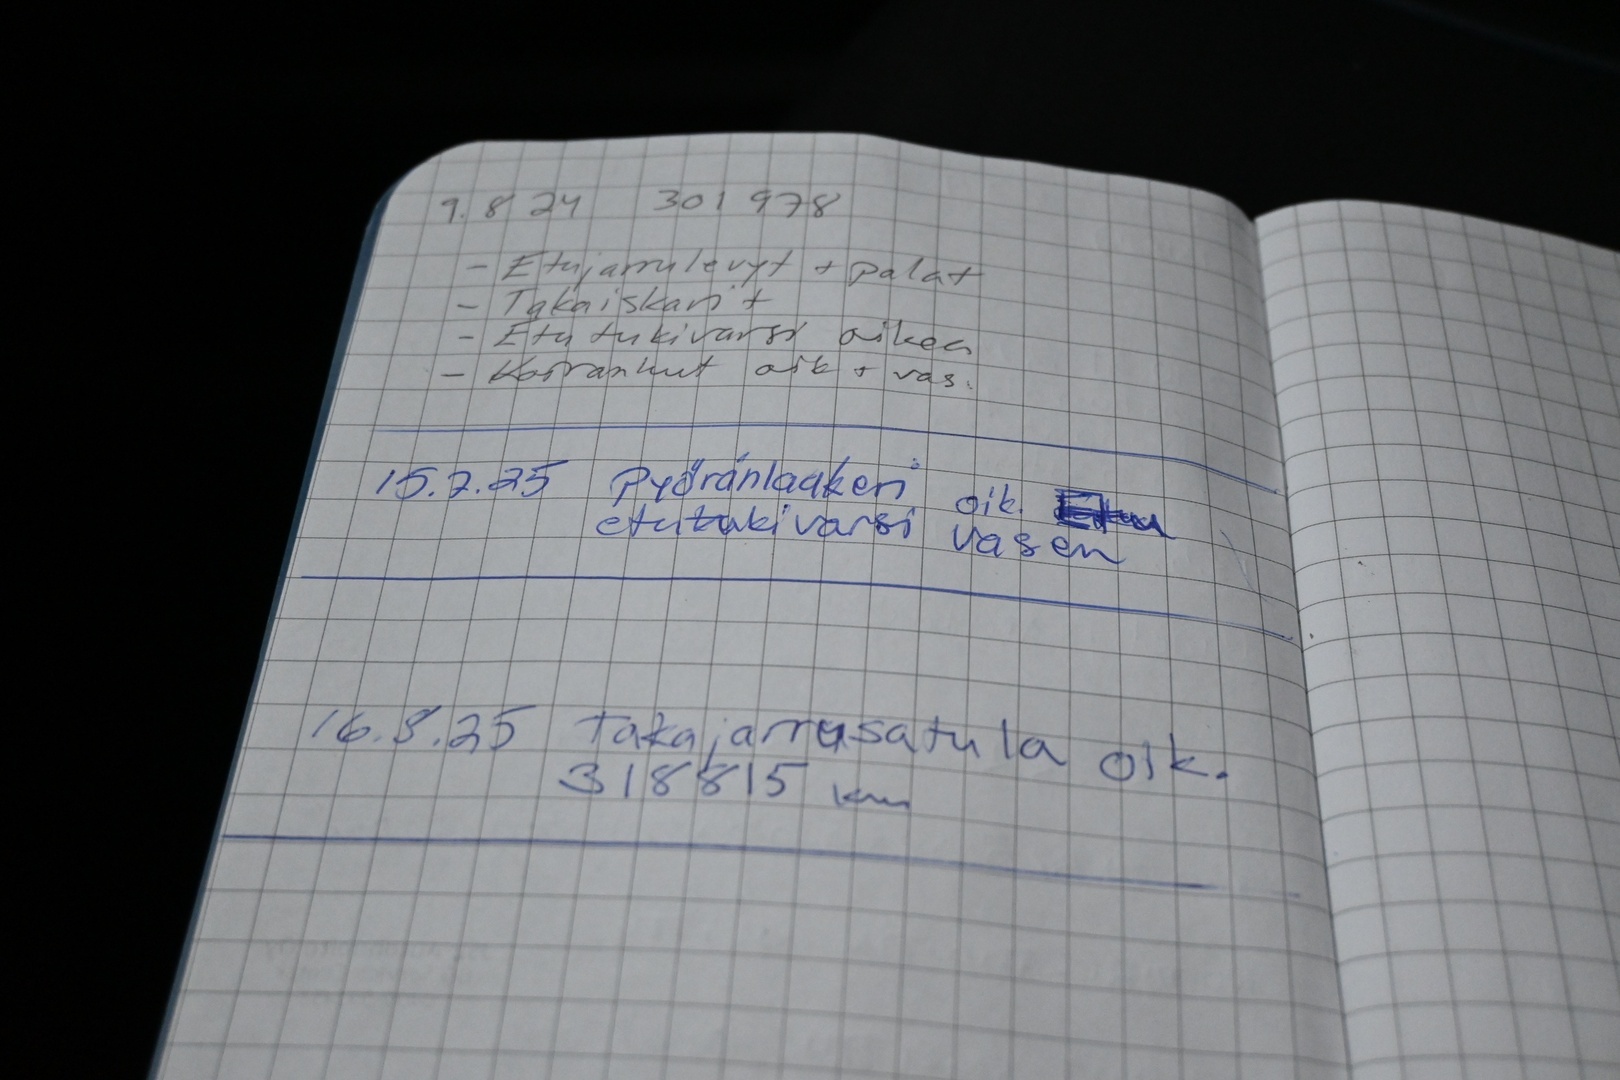 9.8 24 301 978
- Etujarrulevyt + palat
- Takaiskarit
- Etu tukivarsi oikea
- Koiranluut oik + vas.
15.2.25 Pyöränlaakeri oik.
etutukivarsi vasen
16.8.25 Takajarrusatula oik.
318815 km